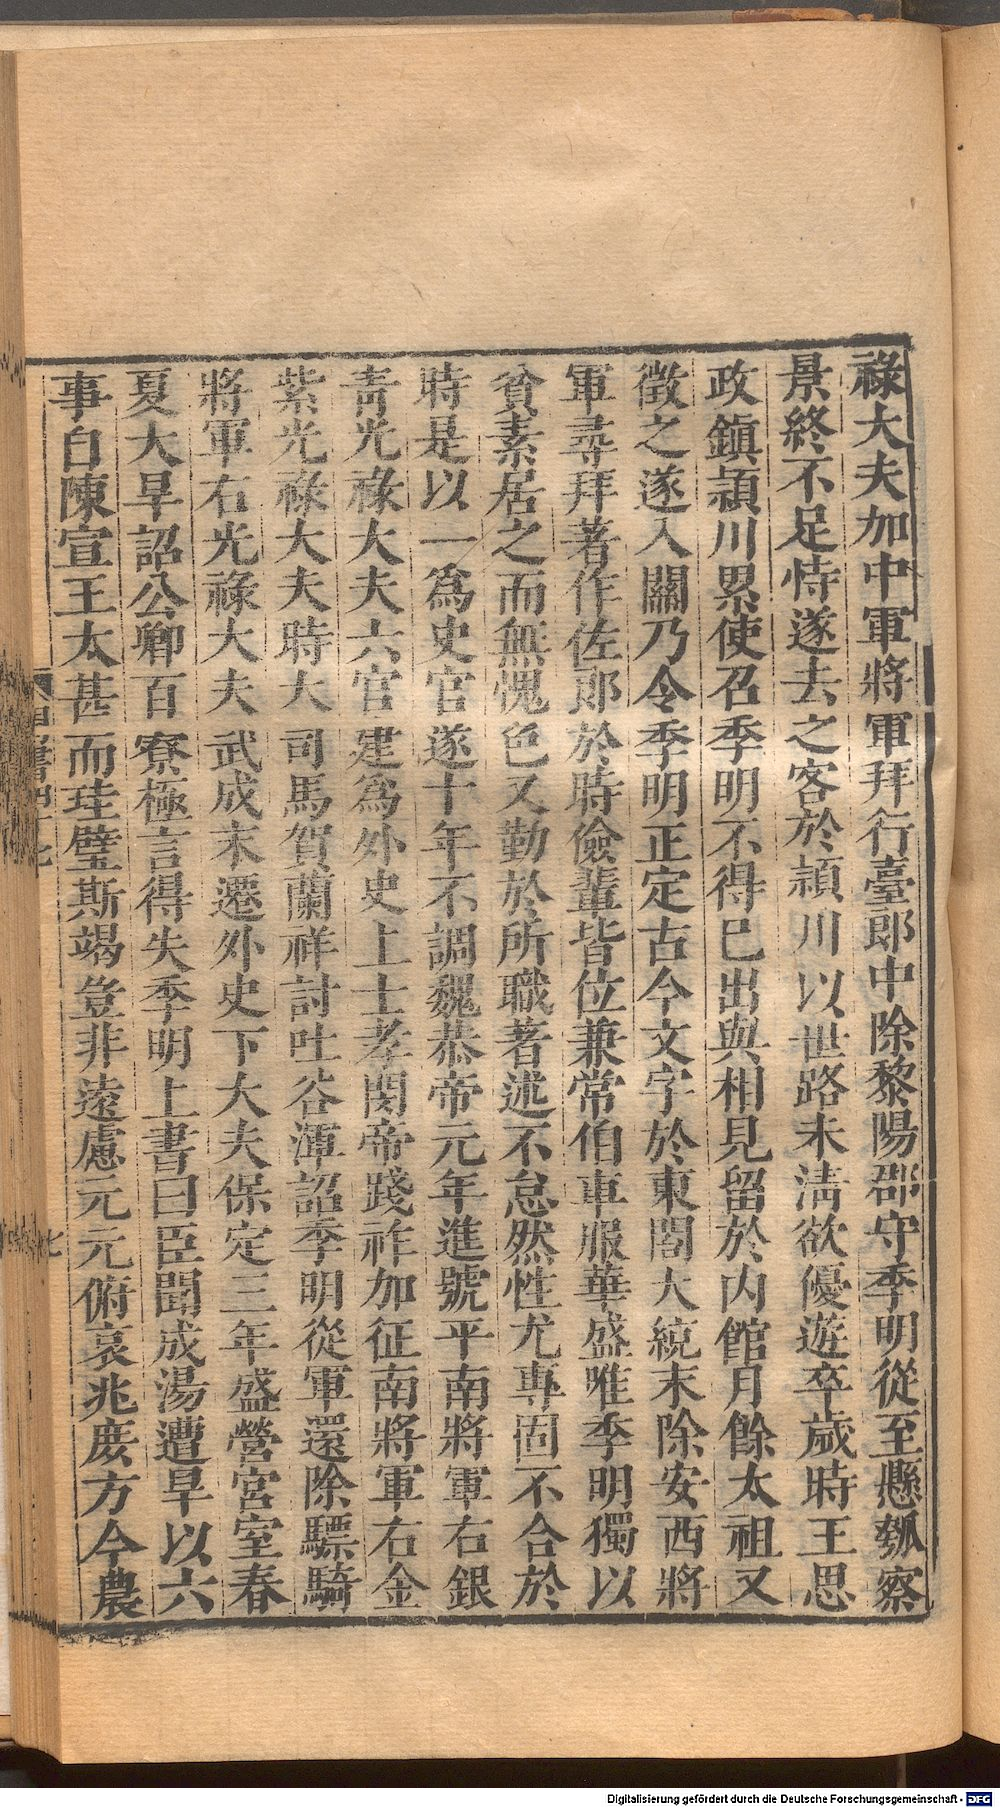 祿大夫加中軍將軍拜行臺郎中除黎陽郡守季明從至懸瓠察
景終不足恃遂去之客於頴川以世路未淸欲優遊卒歲時王思
政鎮頴川累使召季明不得已出與相見留於内館月餘太祖又
徵之遂入關乃令季明正定古今文字於東閣大統末除安西將
軍尋拜著作佐郎於時儉輩皆位兼常伯車服華盛唯季明獨以
貧素居之而無愧色又勤於所職著述不怠然性尤專固不合於
時是以一爲史官遂十年不調魏恭帝元年進號平南將軍右銀
靑光祿大夫六官建爲外史上士孝閔帝踐祚加征南將軍右金
紫光祿大夫時大司馬賀蘭祥討吐谷渾詔季明從軍還除驃騎
將軍右光祿大夫武成末遷外史下大夫保定三年盛營宮室春
夏大旱詔公卿百寮極言得失季明上書曰臣聞成湯遭旱以六
事自陳宣王太甚而珪璧斯竭豈非遠慮元元俯哀兆庶方今農
七
Digitalisierung gefördert durch die Deutsche Forschungsgemeinschaft - DFG